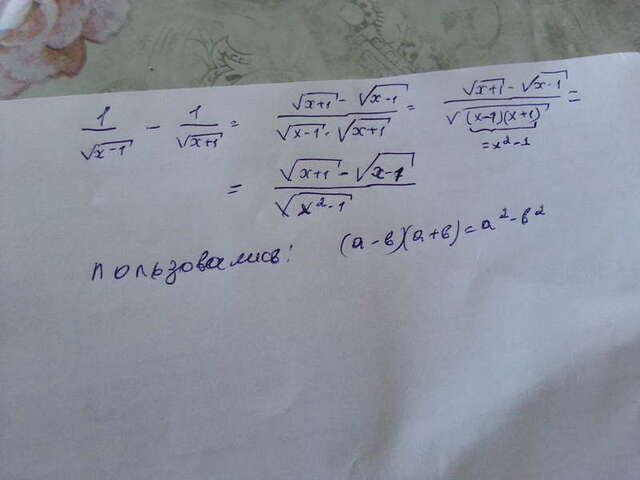 1/√(x-1) - 1/√(x+1) = (√(x+1) - √(x-1))/(√(x-1) · √(x+1)) = (√(x+1) - √(x-1))/√((x-1)(x+1)) =
= x²-1
= (√(x+1) - √(x-1))/√(x²-1)
пользовались: (a-b)(a+b)=a²-b²